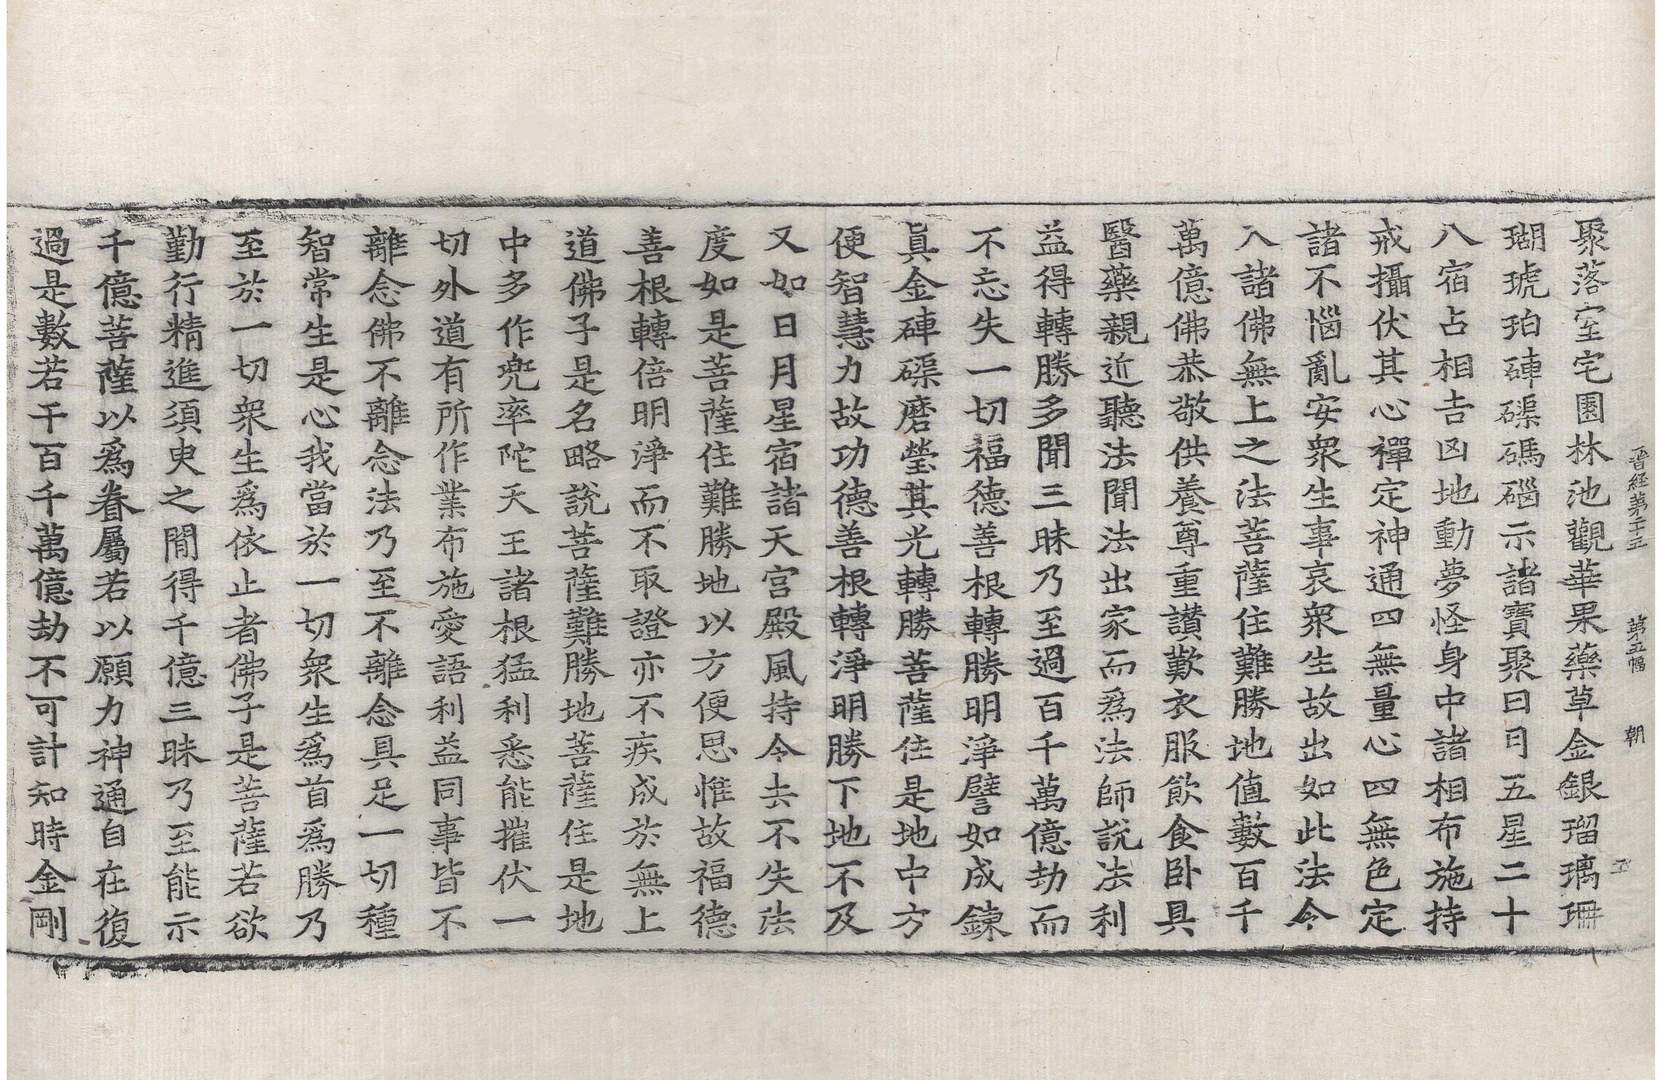 晋経第二十五　第五幅　朝　五
聚落室宅園林池觀華果藥草金銀瑠璃珊
瑚琥珀硨磲碼碯示諸寶聚日月五星二十
八宿占相吉凶地動夢怪身中諸相布施持
戒攝伏其心禪定神通四無量心四無色定
諸不惱亂安衆生事哀衆生故出如此法令
入諸佛無上之法菩薩住難勝地值數百千
萬億佛恭敬供養尊重讃歎衣服飮食卧具
醫藥親近聽法聞法出家而爲法師說法利
益得轉勝多聞三昧乃至過百千萬億劫而
不忘失一切福德善根轉勝明淨譬如成鍊
眞金硨磲磨瑩其光轉勝菩薩住是地中方
便智慧力故功德善根轉淨明勝下地不及
又如日月星宿諸天宮殿風持令去不失法
度如是菩薩住難勝地以方便思惟故福德
善根轉倍明淨而不取證亦不疾成於無上
道佛子是名略說菩薩難勝地菩薩住是地
中多作兜率陀天王諸根猛利悉能摧伏一
切外道有所作業布施愛語利益同事皆不
離念佛不離念法乃至不離念具足一切種
智常生是心我當於一切衆生爲首爲勝乃
至於一切衆生爲依止者佛子是菩薩若欲
勤行精進須臾之閒得千億三昧乃至能示
千億菩薩以爲眷屬若以願力神通自在復
過是數若干百千萬億劫不可計知時金剛